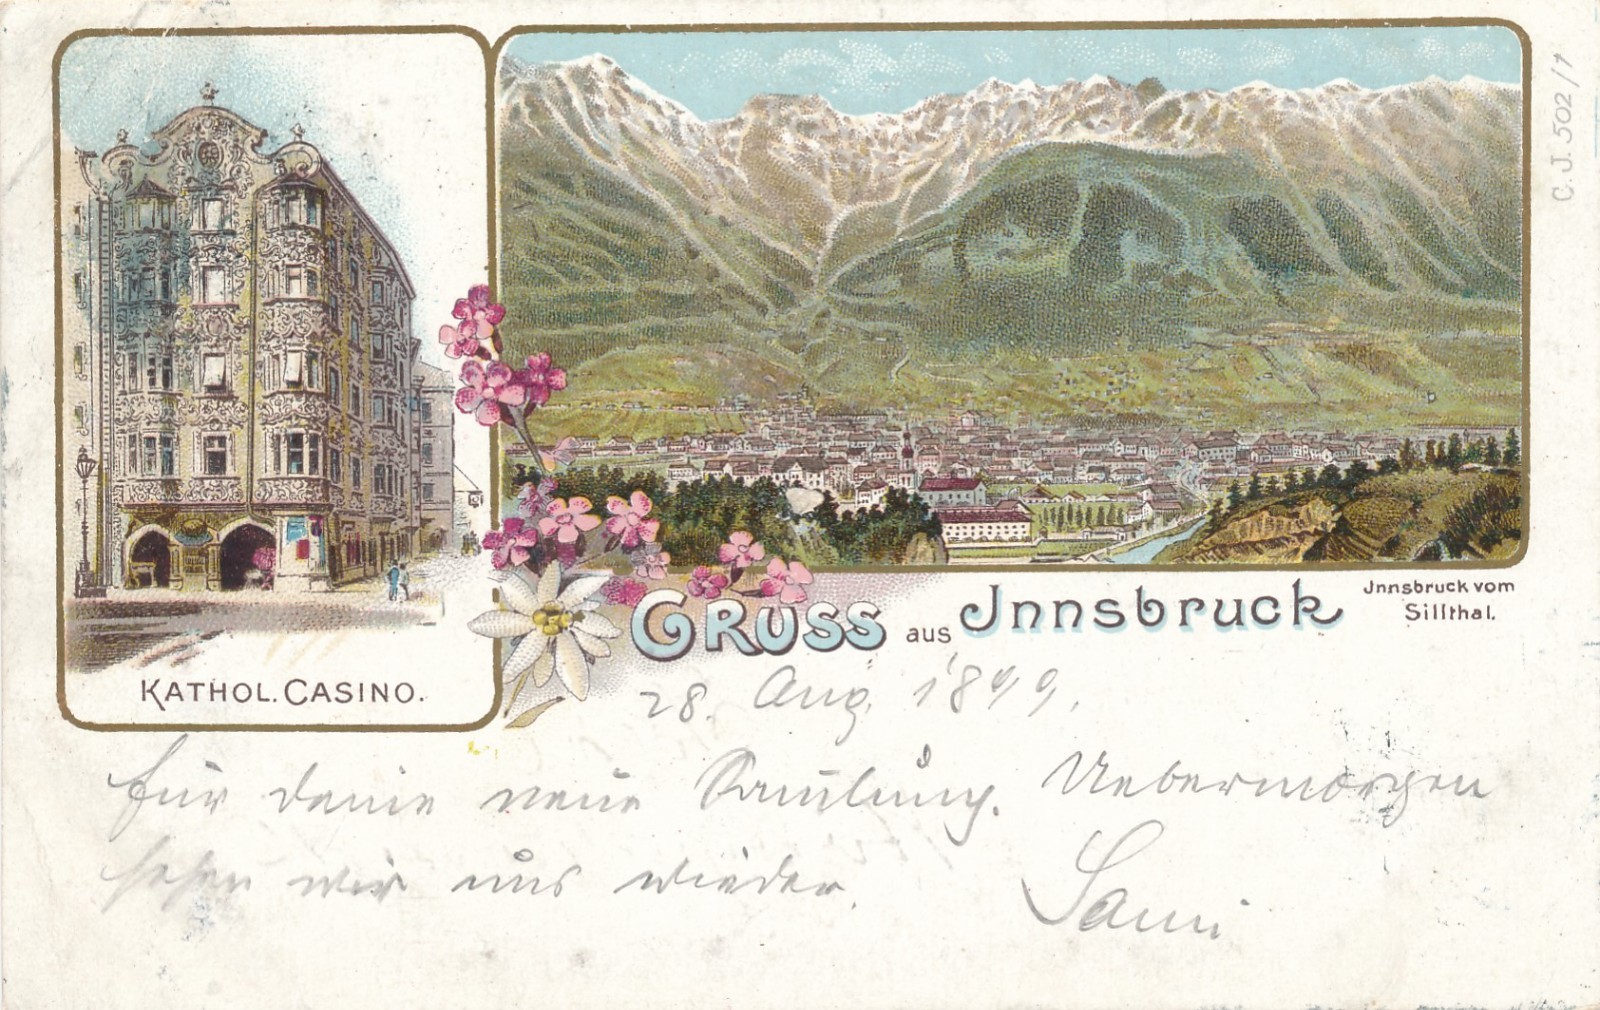 KATHOL. CASINO.
GRUSS aus Innsbruck
Innsbruck vom
Sillthal.
C. J. 502/1
28. Aug. 1899.
für deine neue Samlung. Uebermorgen
sehen wir uns wieder.
Sami